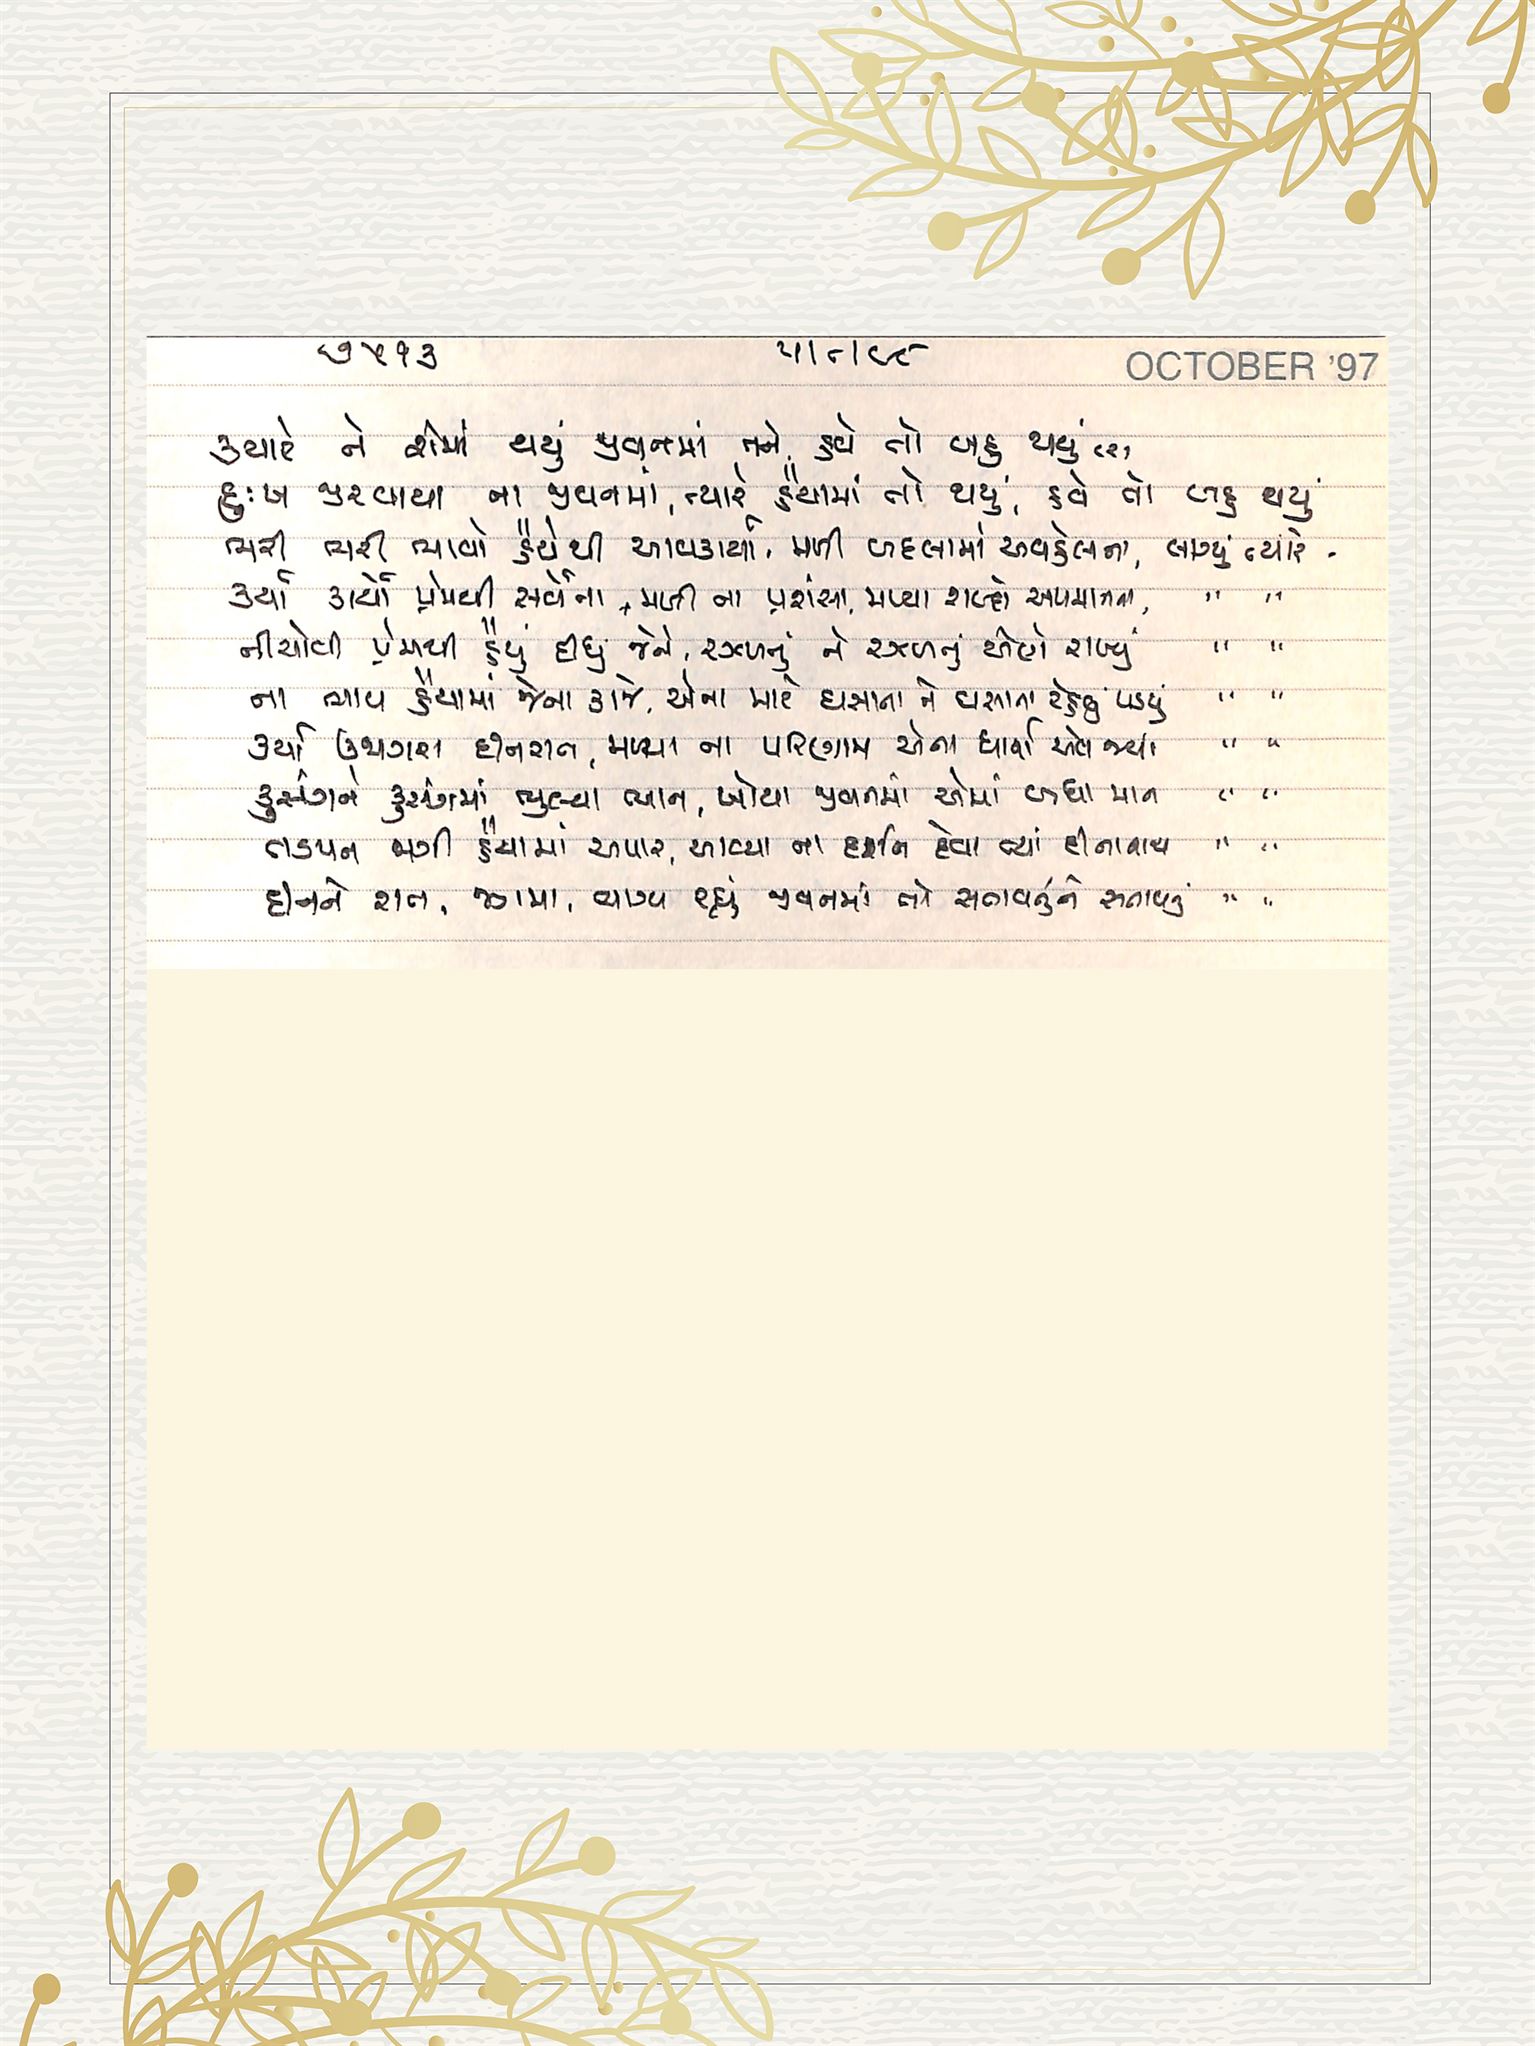 ૭૫૧૩ ૫।૮।૯૮ OCTOBER '97
ક્યારે ને શેમાં થયું જીવનમાં તને, હવે તો બહુ થયું (૨)
દુઃખ જીરવાયા ના જીવનમાં, ત્યારે હૈયામાં તો થયું, હવે તો બહુ થયું
ભરી ભરી ભાવો હૈયેથી આવકાર્યા, મળી બદલામાં અવહેલના, લાગ્યું ત્યારે.
કર્યા કાર્યો પ્રેમથી સર્વેના, મળી ના પ્રશંસા, મળ્યા શબ્દો અપમાનના, " "
નીચોવી પ્રેમથી હૈયું દીધું જેને, રઝળતું ને રઝળતું એણે રાખ્યું " "
ના ભાવ હૈયામાં જેના કાજે, એના માટે ઘસાતા ને ઘસાતા રહેવું પડયું " "
કર્યા ઉજાગરા દીનરાત, મળ્યા ના પરિણામ એના ધાર્યા એવા જ્યાં " "
કુસંગને કુસંગમાં ભુલ્યા ભાન, ખોયા જીવનમાં એમાં બધા માન " "
તડપન જાગી હૈયામાં અપાર, આવ્યા ના દર્શન દેવા જ્યાં દીનાનાથ " "
દીનને રાત, જાગ્યા, ભાગ્ય રહ્યું જીવનમાં તો સતાવતુંને સતાવતું " "